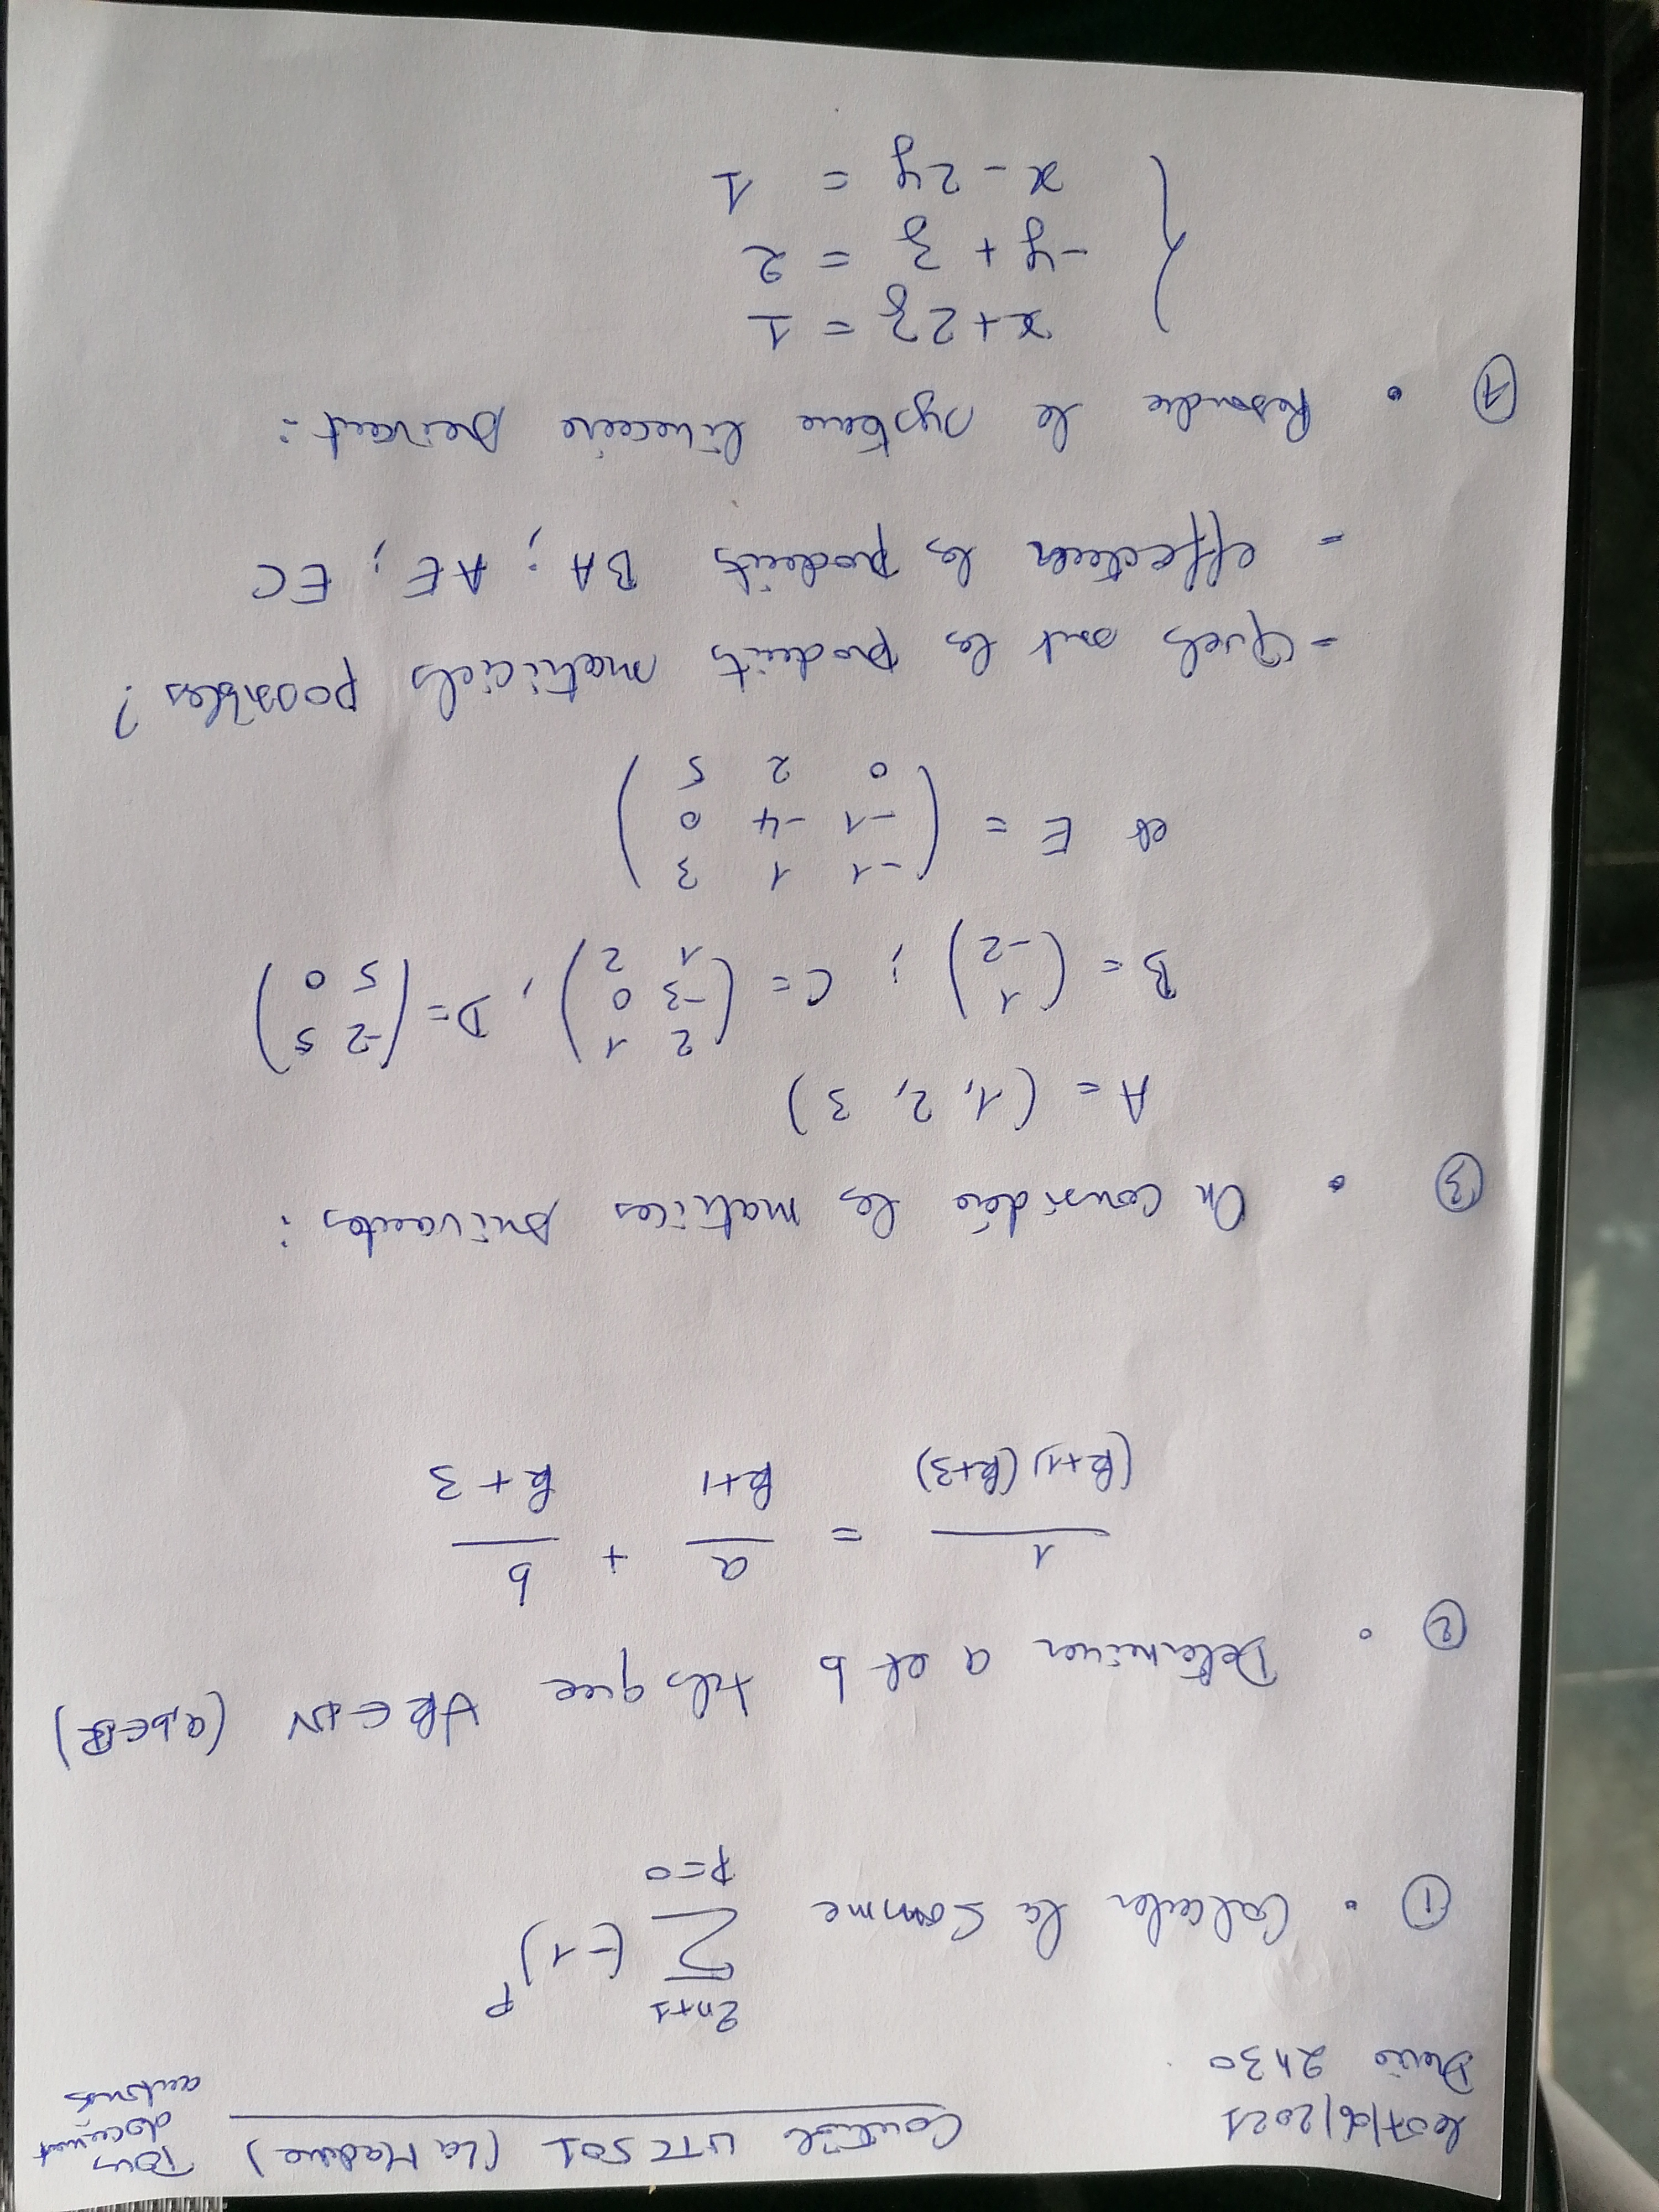 le 07/06/2021
Durée 2h30
Contrôle UTC 501 (La Madine)
Tous
document
autorisés
① • Calculer la somme \sum_{p=0}^{2n+1} (-1)^p
② • Determiner a et b tels que ∀k ∈ ℕ (a,b ∈ ℝ)
\frac{1}{(k+1)(k+3)} = \frac{a}{k+1} + \frac{b}{k+3}
③ • On considére les matrices suivantes :
A = (1, 2, 3)
B = \begin{pmatrix} 1 \\ -2 \end{pmatrix} ; C = \begin{pmatrix} 2 & 1 \\ -3 & 0 \\ 1 & 2 \end{pmatrix}, D = \begin{pmatrix} -2 & 5 \\ 5 & 0 \end{pmatrix}
et E = \begin{pmatrix} -1 & 1 & 3 \\ -1 & -4 & 0 \\ 0 & 2 & 5 \end{pmatrix}
- Quels sont les produits matriciels possibles ?
- effectuer les produits BA ; AE ; EC
④ • Resoudre le système lineaire suivant :
x + 2z = 1
-y + z = 2
x - 2y = 1